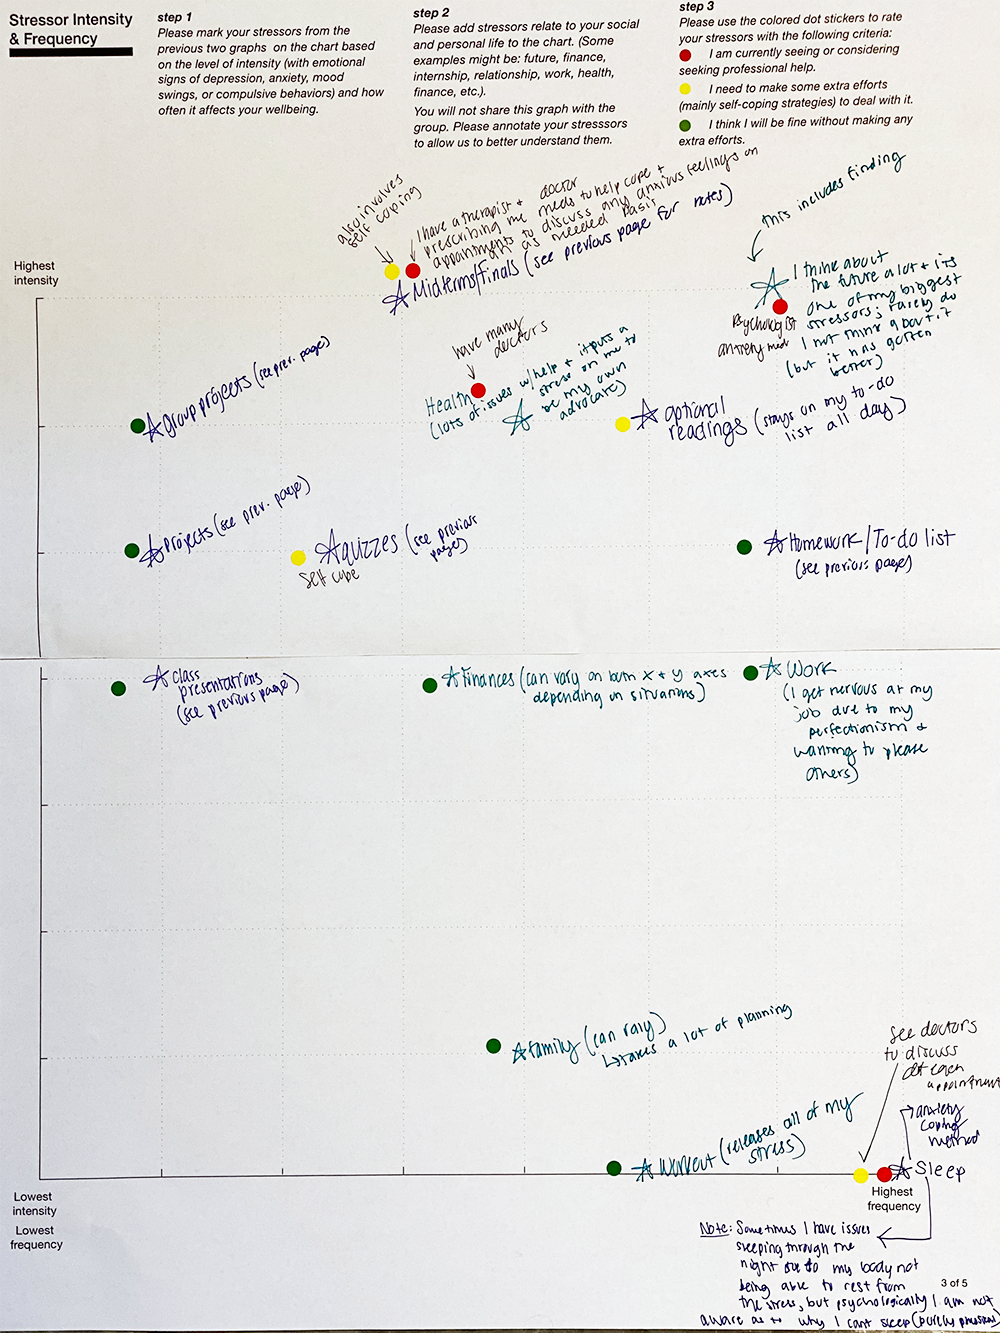 Stressor Intensity
& Frequency
step 1
Please mark your stressors from the
previous two graphs on the chart based
on the level of intensity (with emotional
signs of depression, anxiety, mood
swings, or compulsive behaviors) and how
often it affects your wellbeing.
step 2
Please add stressors relate to your social
and personal life to the chart. (Some
examples might be: future, finance,
internship, relationship, work, health,
finance, etc.).
You will not share this graph with the
group. Please annotate your stresssors
to allow us to better understand them.
step 3
Please use the colored dot stickers to rate
your stressors with the following criteria:
I am currently seeing or considering
seeking professional help.
I need to make some extra efforts
(mainly self-coping strategies) to deal with it.
I think I will be fine without making any
extra efforts.
also involves
self coping
I have a therapist + doctor
prescribing me meds to help cope +
appointments to discuss any anxious feelings on
an as needed basis
Midterms/Finals (see previous page for notes)
this includes finding
I think about
the future a lot + its
one of my biggest
stressors; rarely do
I not think about it
(but it has gotten
better)
Psychologist
anxiety med
Highest
intensity
have many
doctors
Health
(lots of issues w/ help + it puts a
stress on me to
be my own
advocate)
group projects (see prev. page)
optional
readings (stays on my to-do
list all day)
projects (see prev. page)
quizzes (see previous
page)
self cope
Homework/To-do list
(see previous page)
class
presentations
(see previous page)
Finances (can vary on both x + y axes
depending on situations)
Work
(I get nervous at my
job due to my
perfectionism &
wanting to please
others)
family (can vary)
takes a lot of planning
workout (releases all of my
stress)
see doctors
to discuss
at each
appointment
anxiety
coping
method
Sleep
Lowest
intensity
Lowest
frequency
Highest
frequency
Note: Sometimes I have issues
sleeping through the
night due to my body not
being able to rest from
the stress, but psychologically I am not
aware as to why I cant sleep (purely physical)
3 of 5